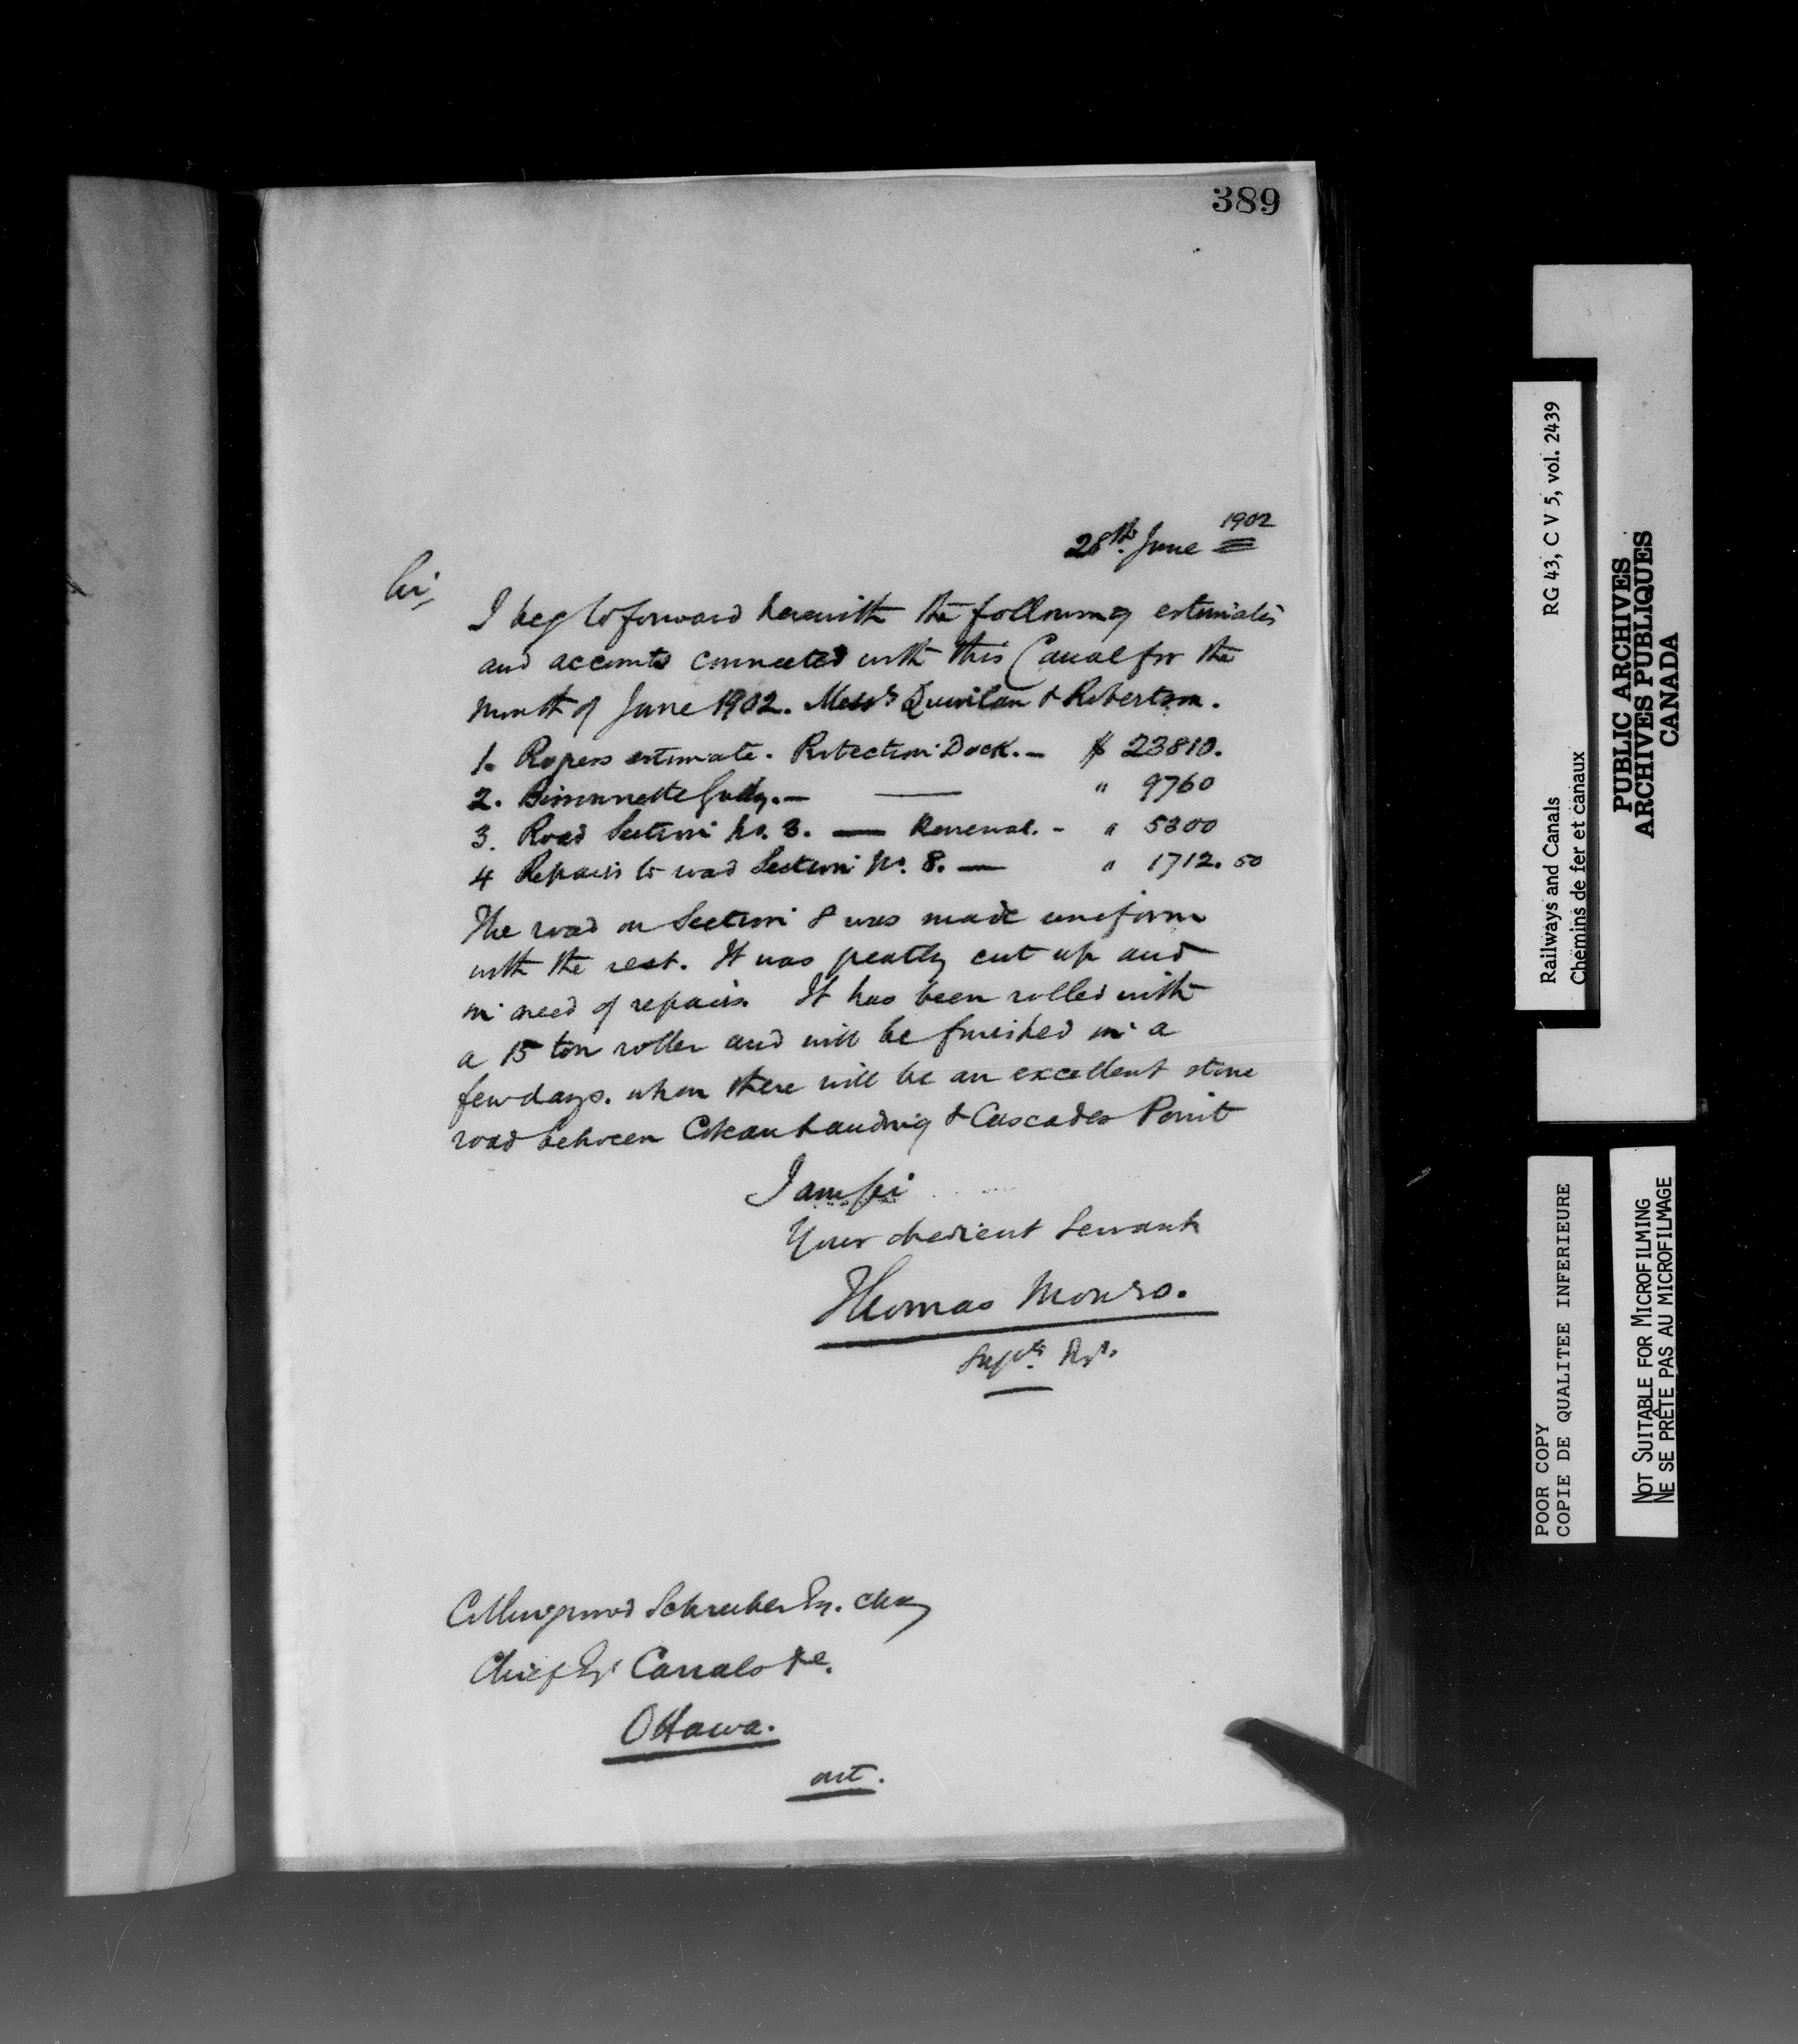 389
28th. June 1902
Sir,
I beg to forward herewith the following estimates
and accounts connected with this Canal for the
month of June 1902. Messrs Quinlan & Robertson.
1. Progress estimate. Protection Dock. — $ 23810.
2. Simonette Gully. — — " 9760
3. Road Section No. 3. — Renewal. - " 5300
4 Repairs to road Section No. 8. — " 1712.50
The road on Section 8 was made uniform
with the rest. It was greatly cut up and
in need of repairs. It has been rolled with
a 15 ton roller and will be finished in a
few days. when there will be an excellent stone
road between Coteau Landing & Cascades Point
I am Sir
Your obedient Servant
Thomas Monro.
Supt. Egr.
Collingwood Schreiber Esq. CMG
Chief Egr Canals &c.
Ottawa.
Railways and Canals RG 43, C V 5, vol. 2439
Chemins de fer et canaux
PUBLIC ARCHIVES
ARCHIVES PUBLIQUES
CANADA
POOR COPY
COPIE DE QUALITEE INFERIEURE
NOT SUITABLE FOR MICROFILMING
NE SE PRÊTE PAS AU MICROFILMAGE